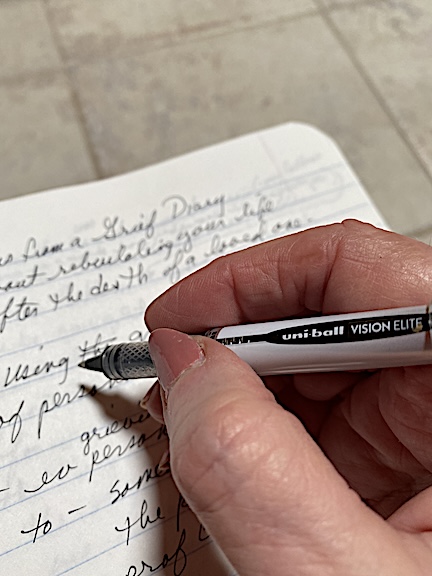 from a Grief Diary
rebuilding your life
after the death of a loved one.
Using the
of person
grievi
- ev person
to - some
the p
prof
uni-ball VISION ELITE